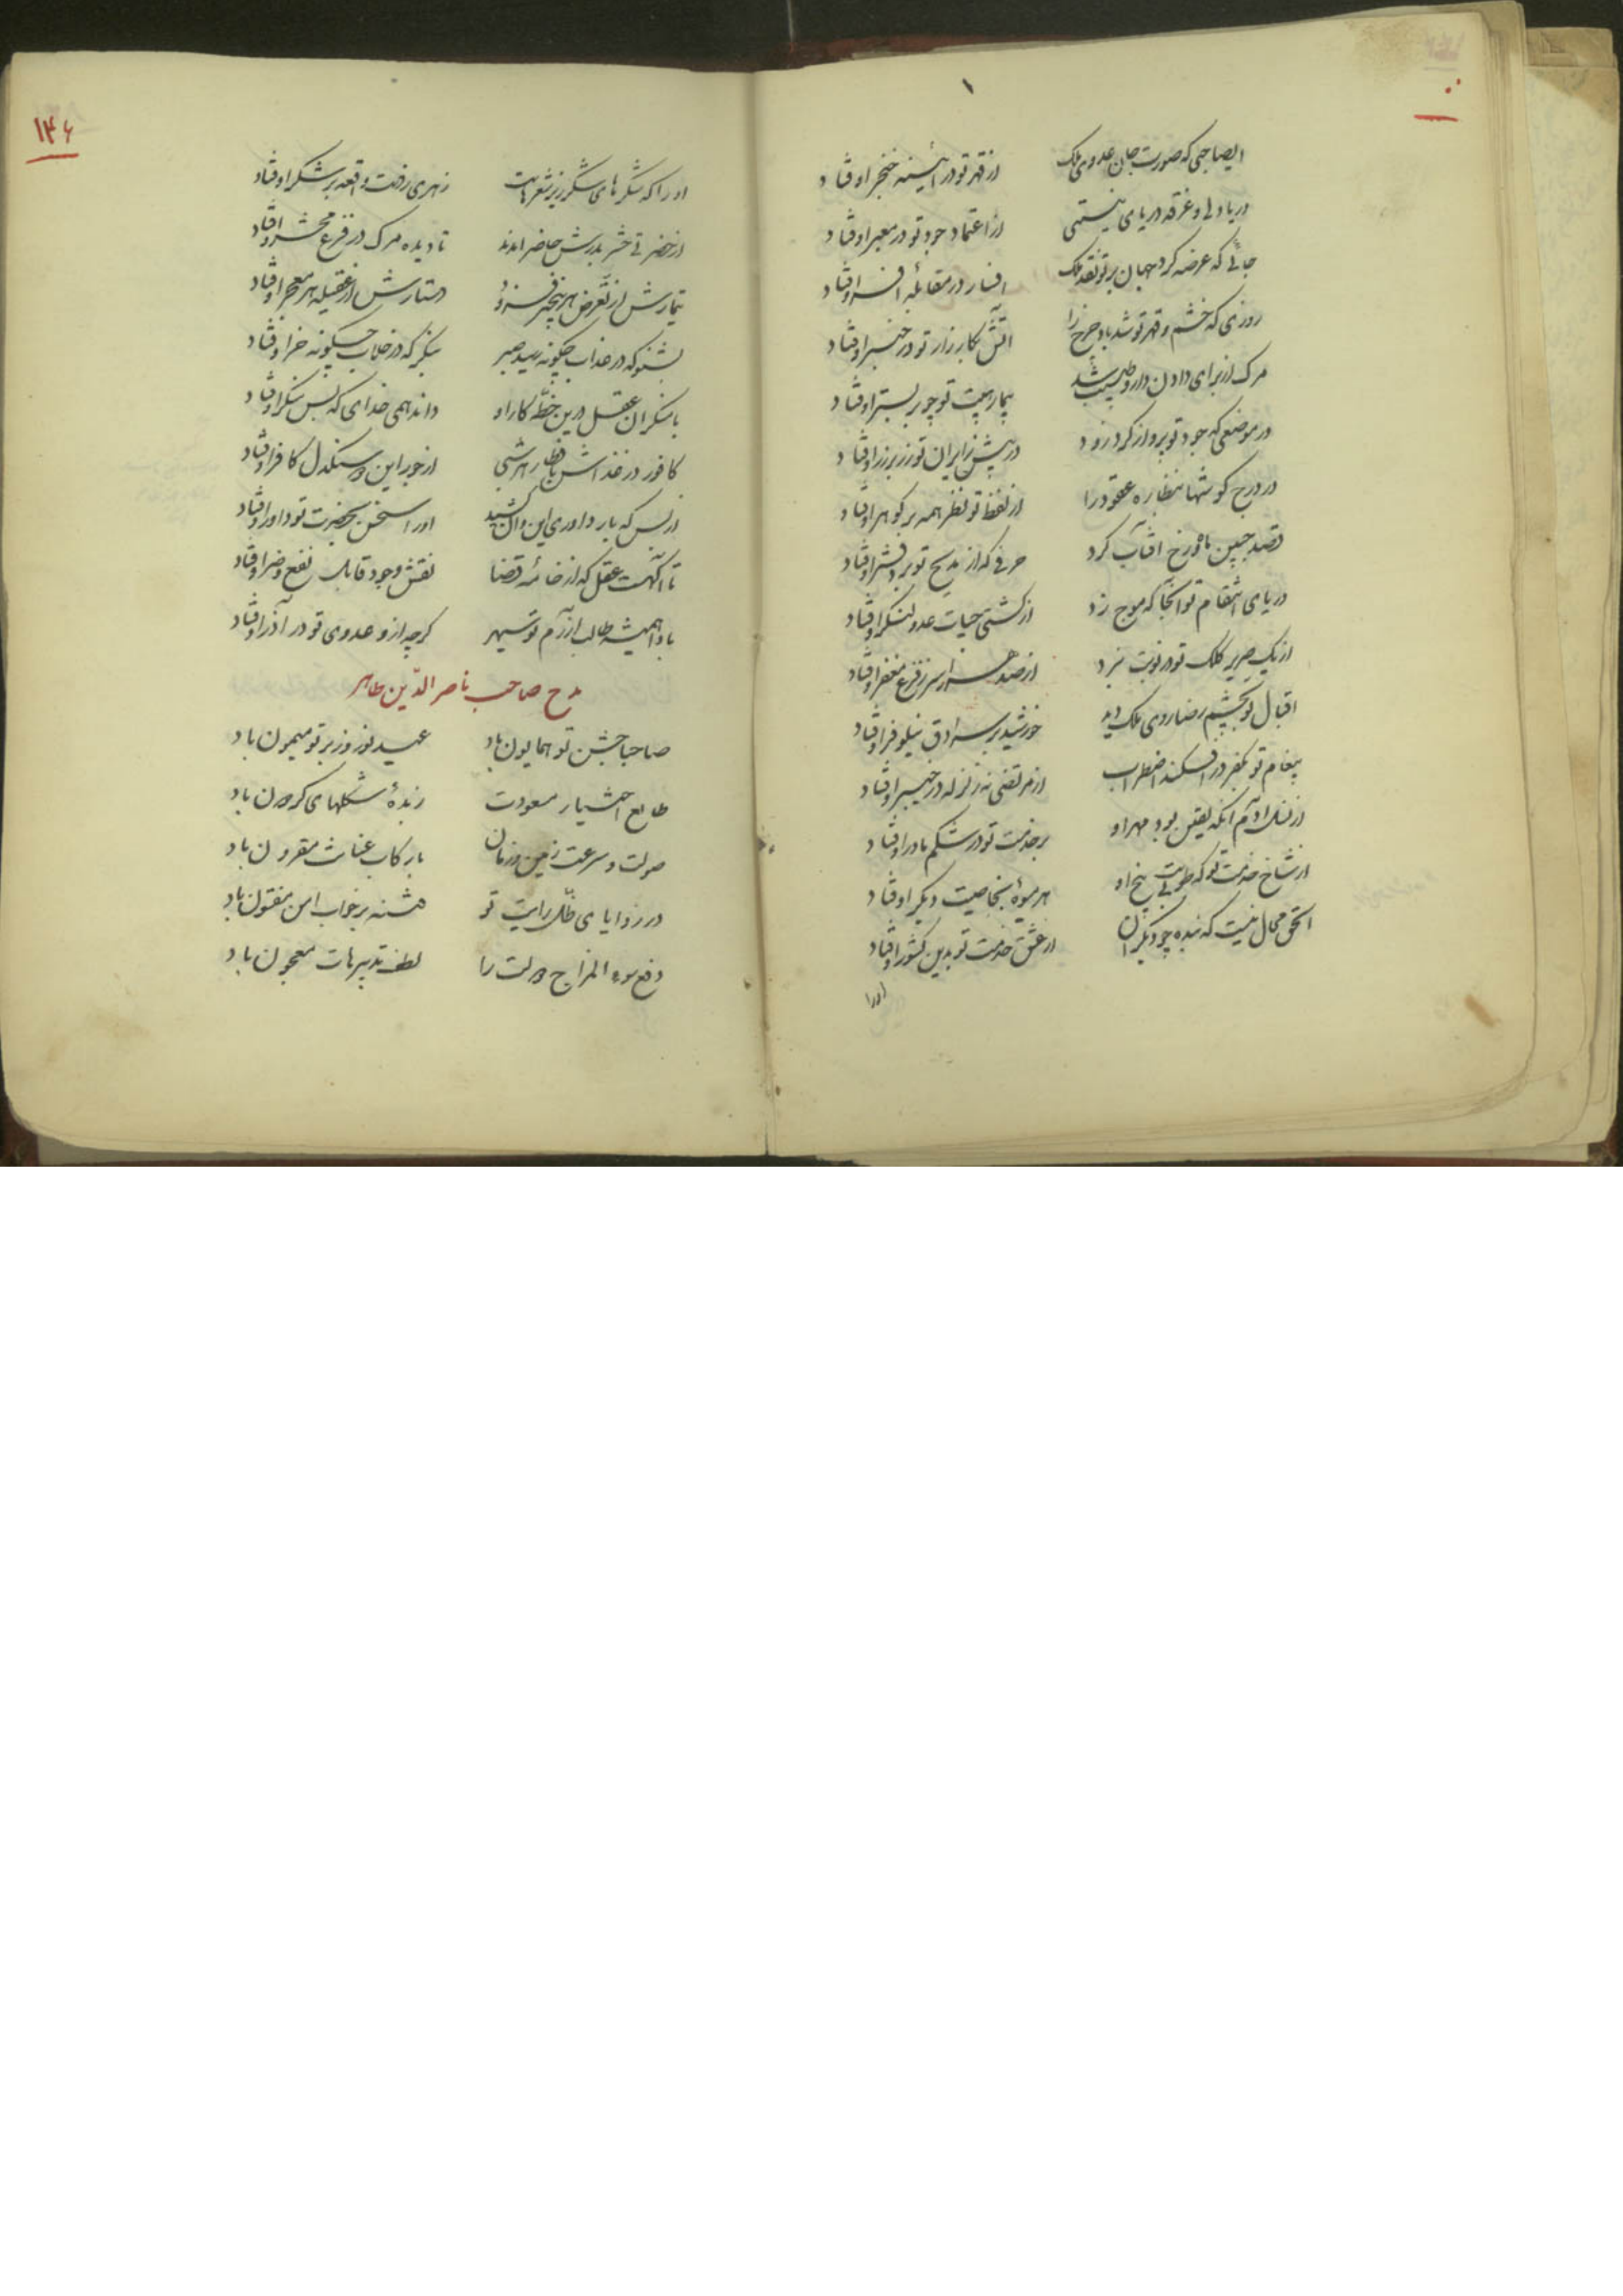 ایصاحبی که صورت جان عدوی ملک    از قهر تو در آئینه خنجر اوفتاد
دریا دلی و غرقه دریای نیستی    از اعتماد جود تو در معبر اوفتاد
جائی که عرضه کرد جهان بر تو نقد ملک    افسار در مقابله افسر اوفتاد
روزی که خشم و قهر تو شد باد چرخ را    آتش بکارزار تو در خیبر اوفتاد
مرک از برای دادن دارو طبیب شد    بیمار هیبت تو چو بر بستر اوفتاد
در موضعی که جود تو پرواز کرد زود    در پیش زایران تو زر بر زر اوفتاد
در درج کوشها بنظاره عقود را    از لفظ تو نظر همه بر کوهر اوفتاد
قصد جبین ماه و رخ آفتاب کرد    حرفی که از مدیح تو بر دفتر اوفتاد
دریای انتقام تو آنجا که موج زد    از کشتی حیات عدو لنکر اوفتاد
از یک صریر کلک تو در نوبت نبرد    از صد هزار سر ز فزع مغفر اوفتاد
اقبال تو بچشم رضا روی ملک دید    خورشید بر سرادق نیلوفر اوفتاد
پیغام تو بکفر در افکند اضطراب    از مرتضی نه زلزله در خیبر اوفتاد
از نسل آدم آنکه یقین بود مهر او    بر خدمت تو در شکم مادر اوفتاد
از شاخ خدمت تو که طوبیست بیخ او    هر میوهٔ بخاصیت دیکر اوفتاد
الحق محال نیست که بنده چو دیکران    از عشق خدمت تو بدین کشور اوفتاد
اورا
۱۴۶
او را که شکرهای شکرریز شعرهاست    زهری رفت واقعه بر شکر اوفتاد
از حضرتی حشر بدرش حاضر آمدند    نادیده مرک در فزع محشر اوفتاد
تیمارش از تعرض هر بیخبر فزود    دستارش از عقیله هر معجر اوفتاد
بشنو که در عذاب چکونه رسید صبر    بنکر که در خلاب چکونه خر اوفتاد
با منکران عقل درین خطه کار او    داند همی خدای که بس منکر اوفتاد
کافور در غذاش بافطار هر شبی    از جور این دو سنکدل کافر اوفتاد
از بس که بار داوری این و آن کشید    او را سخن بحضرت تو داور اوفتاد
تا آکهست عقل که از خامهٔ قضا    نقش وجود قابل نفع و ضر اوفتاد
بادا همیشه طالب آزرم تو سپهر    کرچه ازو عدوی تو در آذر اوفتاد
مدح صاحب ناصر الدّین طاهر
صاحبا جشن تو همایون باد    عید نوروز بر تو میمون باد
طالع اختیار مسعودت    زبدهٔ شکلهای کردون باد
صولت و سرعت زمین و زمان    با رکاب عنانت مقرون باد
در زوایای ظلّ رایت تو    فتنه بر خواب امن مفتون باد
دفع سوء المزاج دولت را    لطف تدبیرهات معجون باد